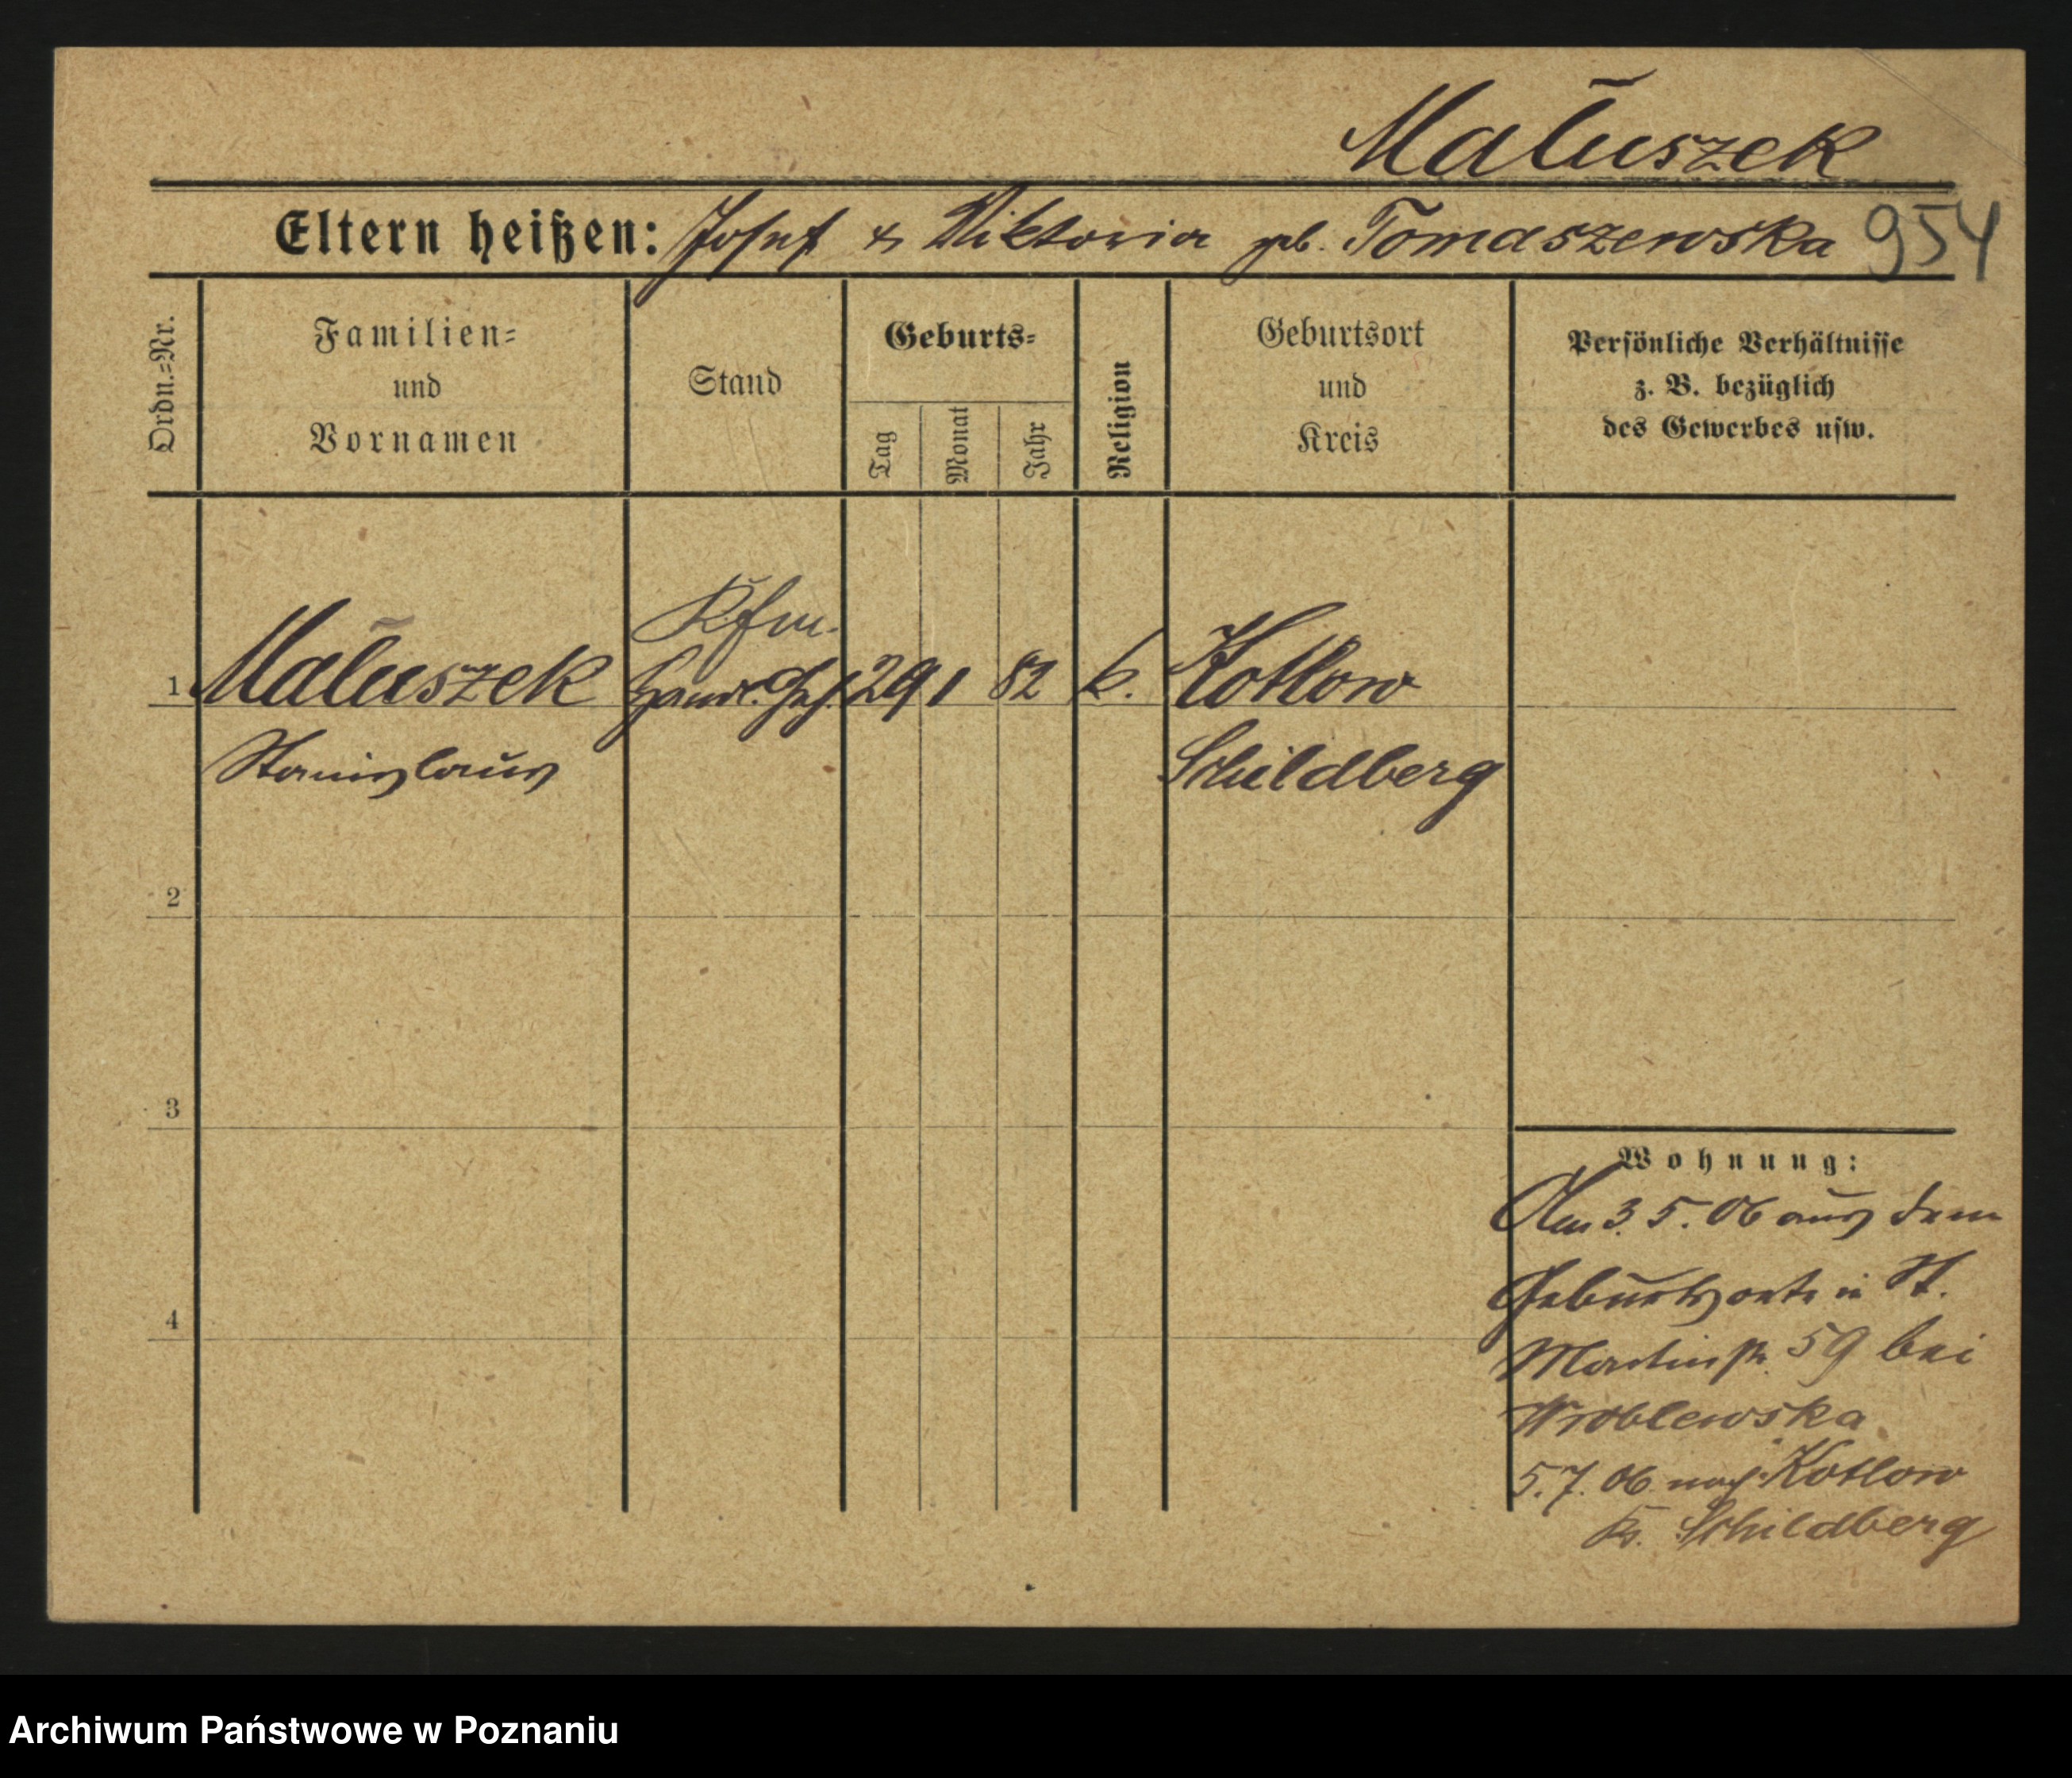 Maluszek
Eltern heißen: Josef & Viktoria geb. Tomaszewska 954
Ordn.=Nr.
Familien=
und
Vornamen
Stand
Geburts=
Tag
Monat
Jahr
Religion
Geburtsort
und
Kreis
Persönliche Verhältnisse
z. B. bezüglich
des Gewerbes usw.
Kfm.
1 Maluszek Handl. Geh. 29 1 82 k. Kotlow
Stanislaus Schildberg
2
3
4
Wohnung:
Am 3. 5. 06 aus dem
Geburtsorte in St.
Martinstr. 59 bei
Wroblewska
5. 7. 06 nach Kotlow
Kr. Schildberg
Archiwum Państwowe w Poznaniu